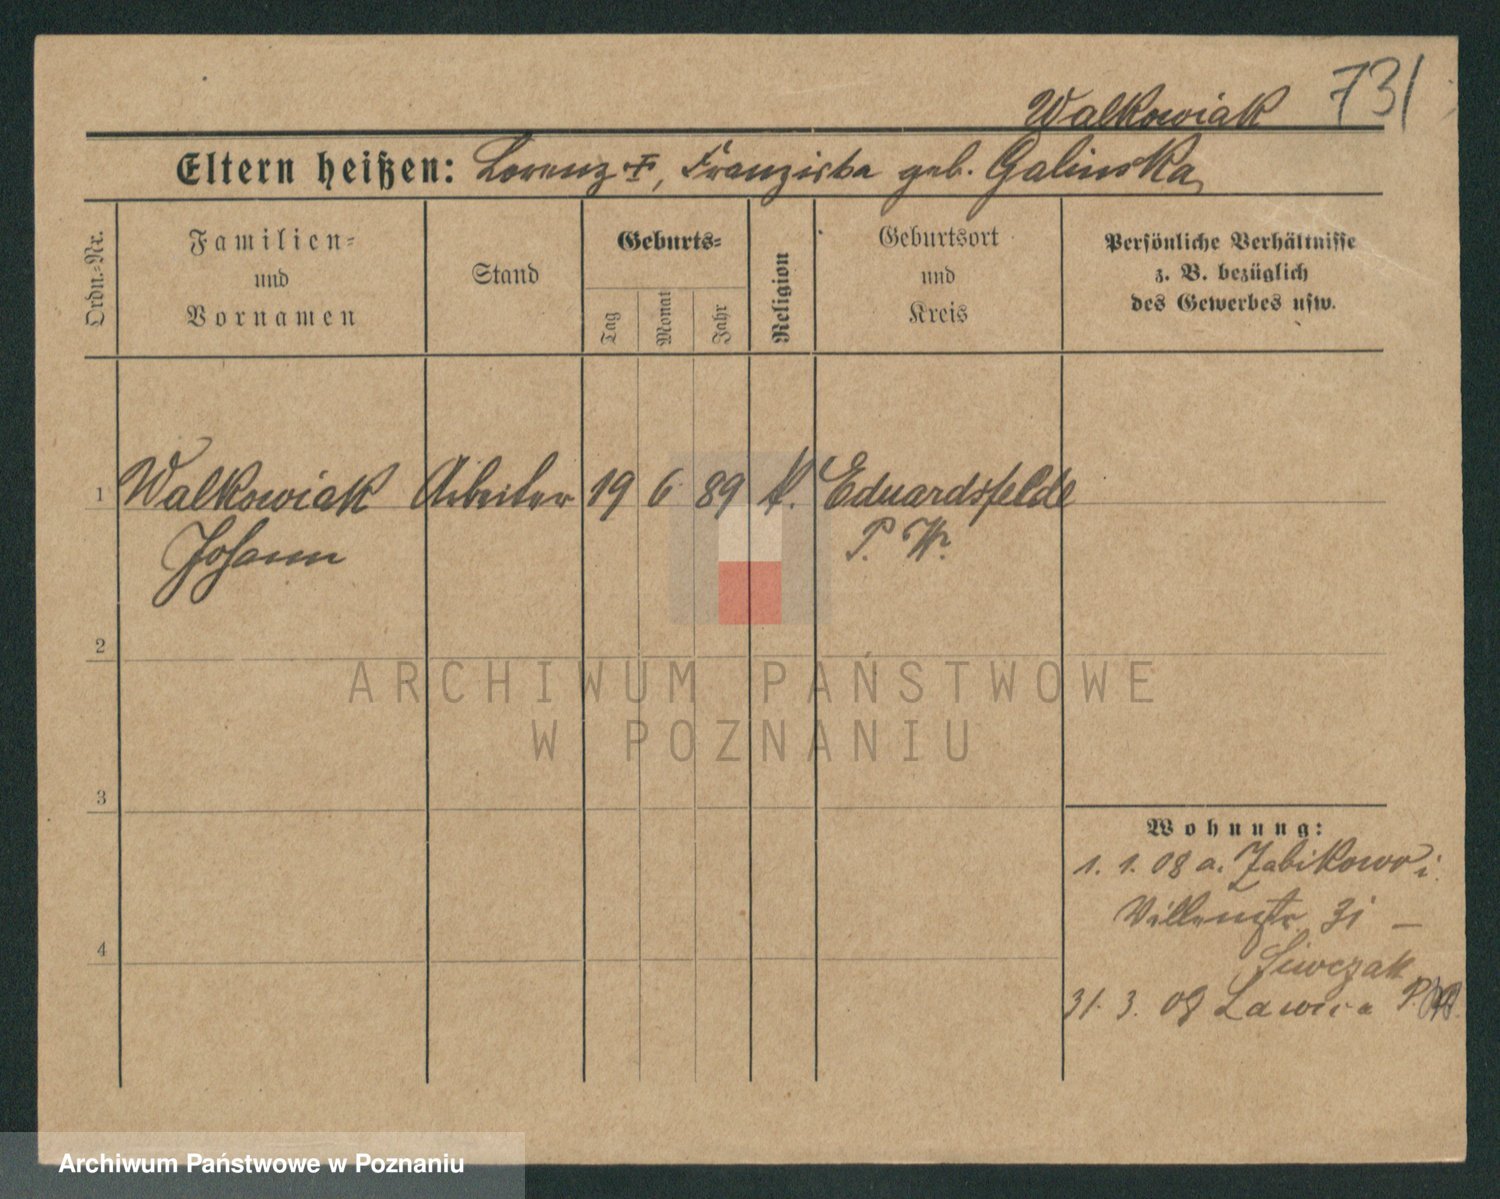 731
Walkowiak
Eltern heißen: Lorenz †, Franziska geb. Galinska
Ordn.-Nr.
Familien-
und
Vornamen
Stand
Geburts-
Tag
Monat
Jahr
Religion
Geburtsort
und
Kreis
Persönliche Verhältnisse
z. B. bezüglich
des Gewerbes usw.
1 Walkowiak Arbeiter 19 6 89 k. Eduardsfelde
Johann P. W.
2
ARCHIWUM PAŃSTWOWE
W POZNANIU
3
Wohnung:
1. 1. 08 a. Zabikowo i.
Villenstr. 31 –
31. 3. 08 Lawica P.
4
Archiwum Państwowe w Poznaniu